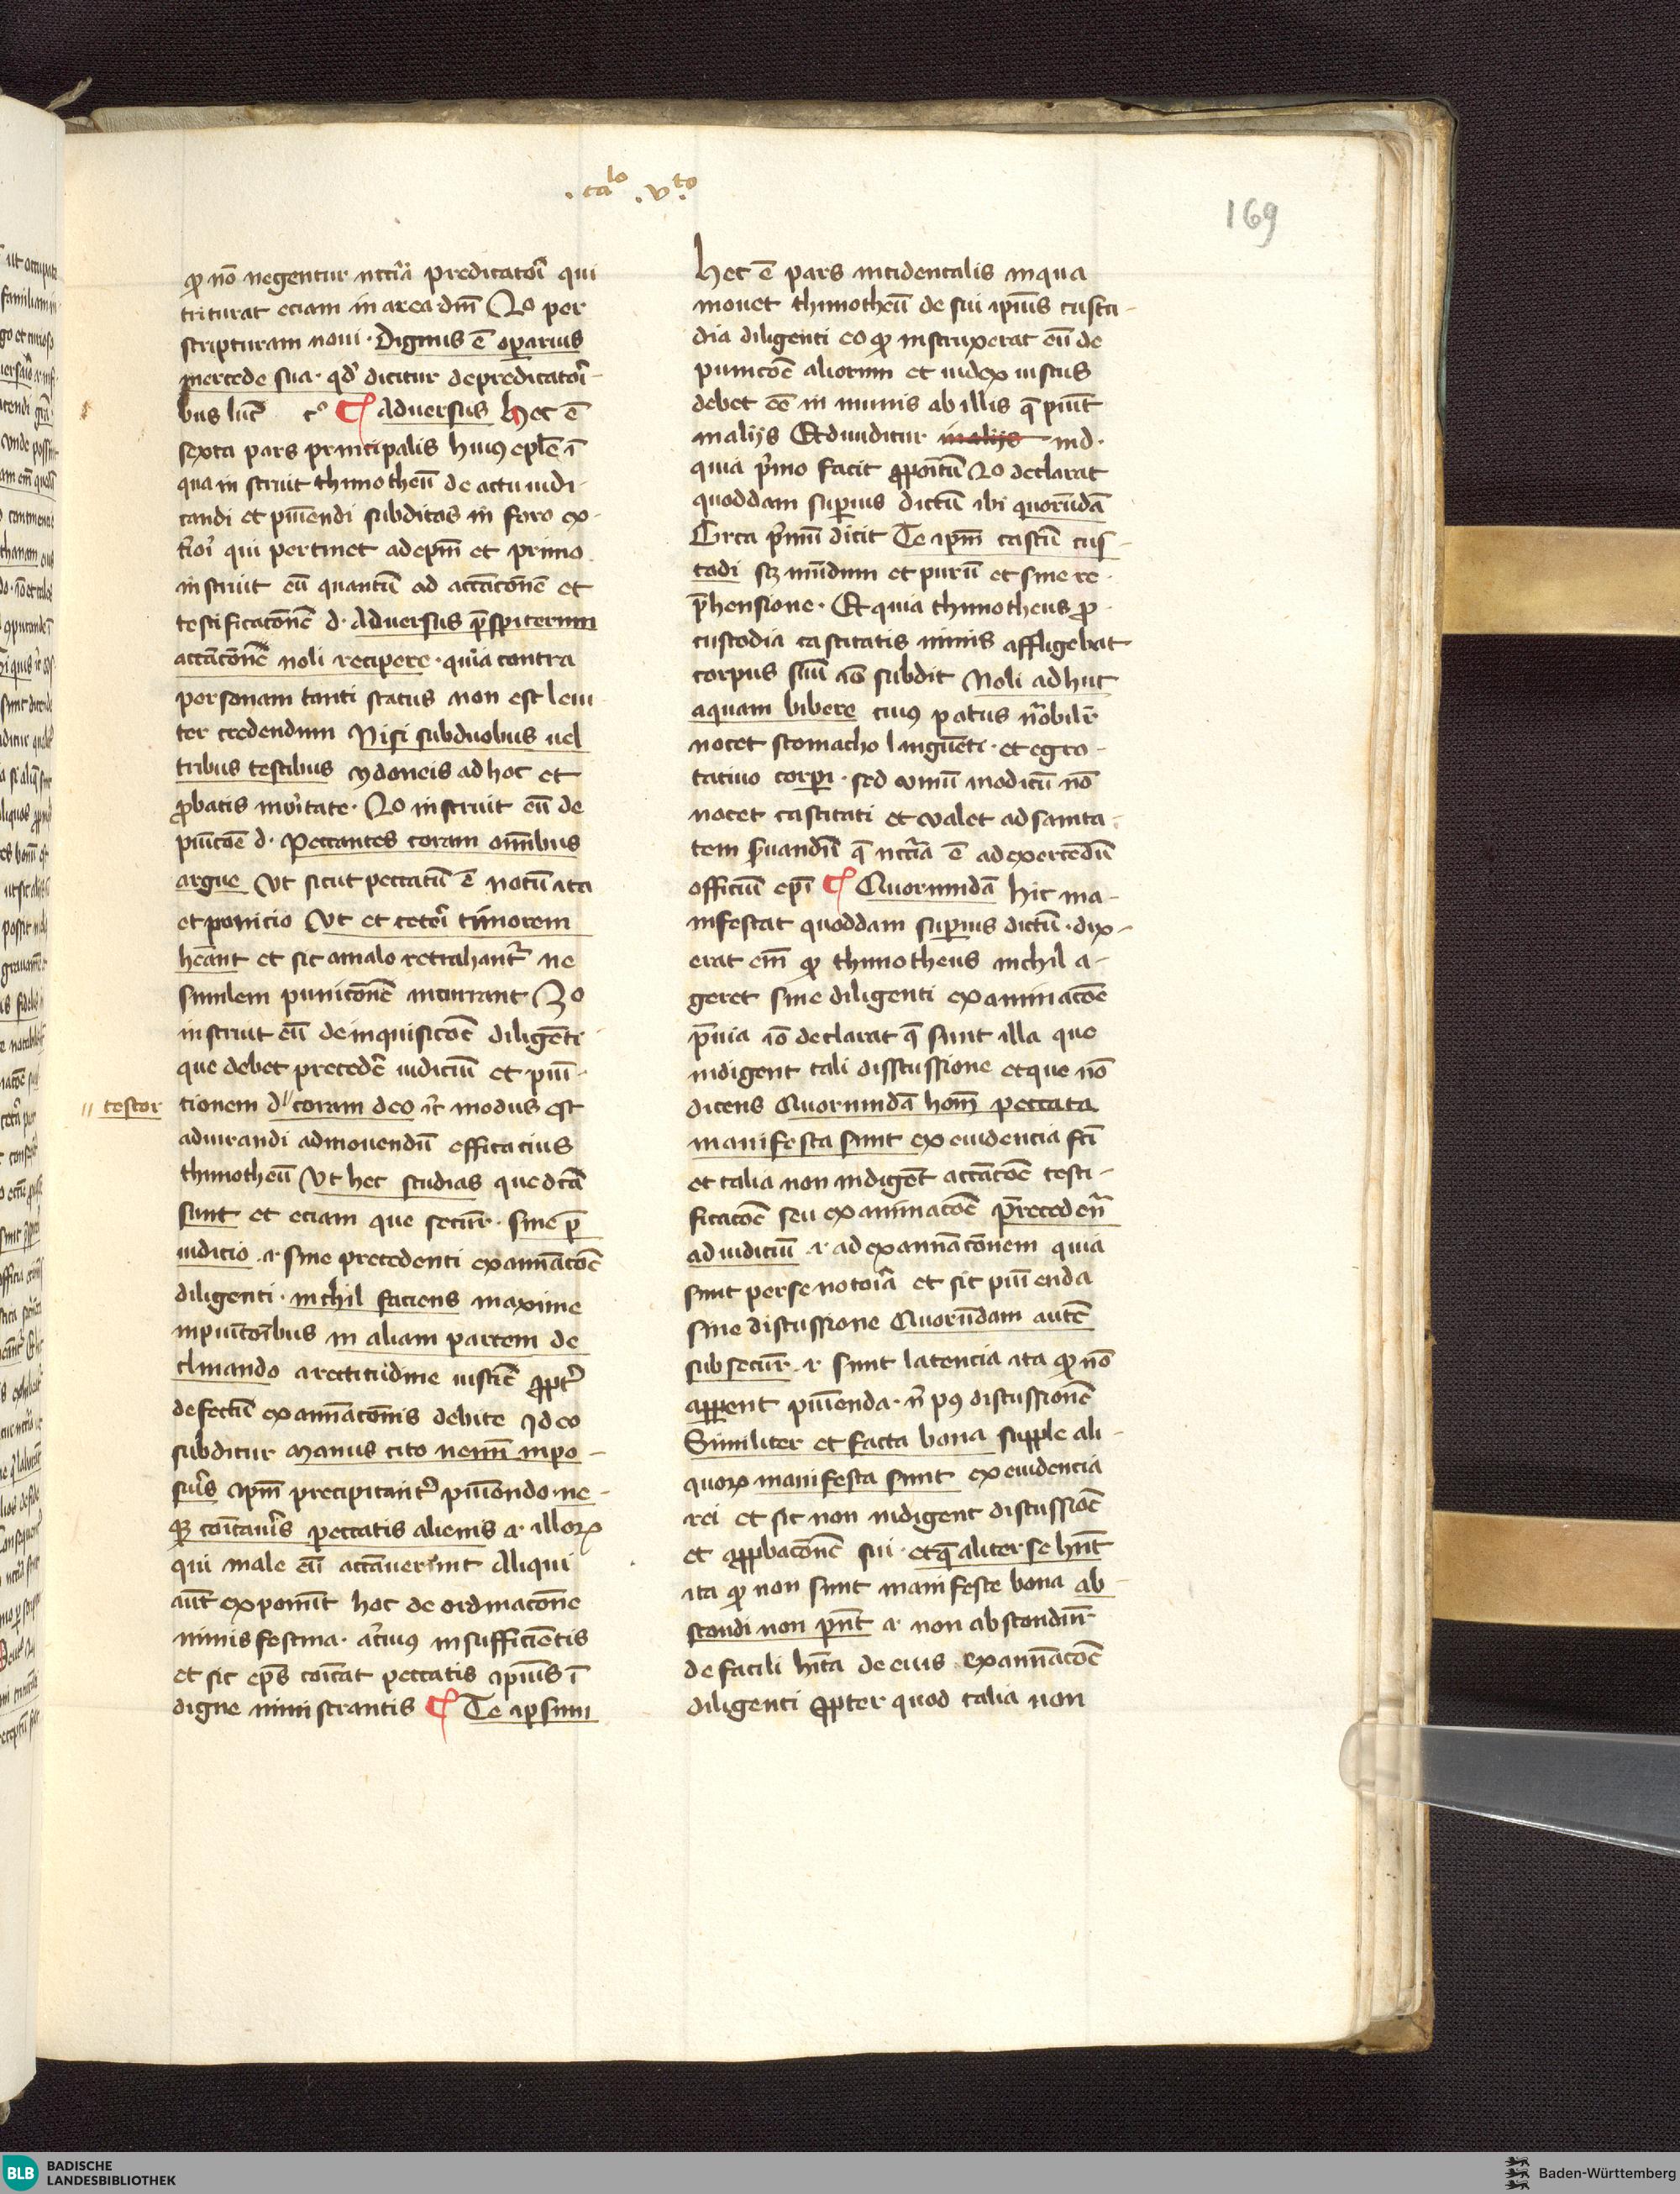 .ca^lo .v^to.
169
ꝙ nō negentur nccīa predicatoī qui
triturat eciam in area dnī 2o per
scripturam noui · Dignus ē operarius
mercede sua · qđ dicitur de predicatoī-
bus luc̄ cº ¶ Aduersus hec ē
sexta pars principalis huiꝰ eplē ī
qua instruit thimotheū de actu iudi-
candi et pūiendi subditos in foro ex-
t̄ioī qui pertinet ad epm̄ et primo
instruit eū quantū ad accācōnē et
testificatōnē d· Aduersus p̄spiterum
accācōnē noli recipere · quia contra
personam tanti status non est leui
ter credendum Nisi sub duobus uel
tribus testibus ydoneis ad hoc et
ꝓbatis in v̄itate · 2o instruit eū de
pūicōe d· Peccantes coram om̄ibus
argue Vt sicut peccatū ē notū ita
et ponicio Vt et ceteī timorem
hēant et sic a malo retrahant᷑ ne
similem punicōnē incurrant 3o
instruit eū de inquisicōe diligēti
que debet precedē iudiciū et pūi-
// testor
tionem d// coram deo ⁊c̄ modus est
adiurandi ad mouendū efficacius
thimotheū Vt hec studias que dc̄a
sunt et eciam que secūr · sine p̄
iudicio ⁊ sine precedenti examīacōe
diligenti · nichil faciens maxime
in pūicōībus in aliam partem de
clinando a rectitudine iusticē ꝓpt᷑
defectū examīacōnis debite Ideo
subditur Manus cito nemī inpo-
sūis ipm̄ precipitant᷑ pūiendo · ne-
qꝫ cōicaūis peccatis alienis ⁊ illoꝝ
qui male eū accāuerint Aliqui
aūt exponūt hoc de ordinacōne
nimis festina · alicuiꝰ insufficiētis
et sic ep̄s cōicat peccatis ipiūs ī
digne ministrantis ¶ Te ipsum
Hec ē pars incidentalis in qua
mouet thimotheū de sui ipiūs custo-
dia diligenti eo ꝙ instruxerat eū de
punicōe aliorum et iudex iustus
debet eē in munis ab illis q̄ pūit
in aliis Et diuiditur in aliis in d·
quia p̄mo facit ꝓpoītū 2o declarat
quoddam suꝑius dictū ibi quorūdā
Circa p̄mū dicit Te ipm̄ castū cus-
todi sꝫ mūdum et purū et sine re-
p̄hensione · Et quia thimotheus ꝓ
custodia castitatis nimis affligebat
corpus suū iō subdit Noli adhuc
aquam bibere cuiꝰ potus nōbilr̄
nocet stomacho languēti · et egro-
tatiuo corpi · sed vinū modicū nō
nocet castitati et valet ad sanita-
tem s̄uandū q̄ nccīa ē ad exercēdū
officiū ep̄i ¶ Quorumdā hic ma-
nifestat quoddam suꝑius dictū · dix-
erat em̄ ꝙ thimotheus nichil a-
geret sine diligenti examinacōe
p̄uia iō declarat q̄ sunt illa que
indigent tali disscussione et que nō
dicens Quorumdā hom̄ peccata
manifesta sunt ex euidencia fc̄i
et talia non indigēt accācōe testi-
ficacōe seu examinacōe p̄cedenā
ad iudiciū ⁊ ad examīacōnem quia
sunt per se notoīa et sic pūienda
sine discussione Quorūdam autē
subsecūr ⁊ sunt latencia ita ꝙ nō
apparent pūienda · n̄ pꝰ discussionē
Similiter et facta bona supple ali-
quoꝝ manifesta sunt ex euidencia
rei et sic non indigent discussiōe
et apꝓbacōnē sui · et q̄ aliter se hn̄t
ita ꝙ non sunt manifeste bona ab-
scondi non pn̄t ⁊ non abscondūr
de facili hīta de eius examīacōe
diligenti ꝓpter quod talia non
BLB BADISCHE LANDESBIBLIOTHEK
Baden-Württemberg